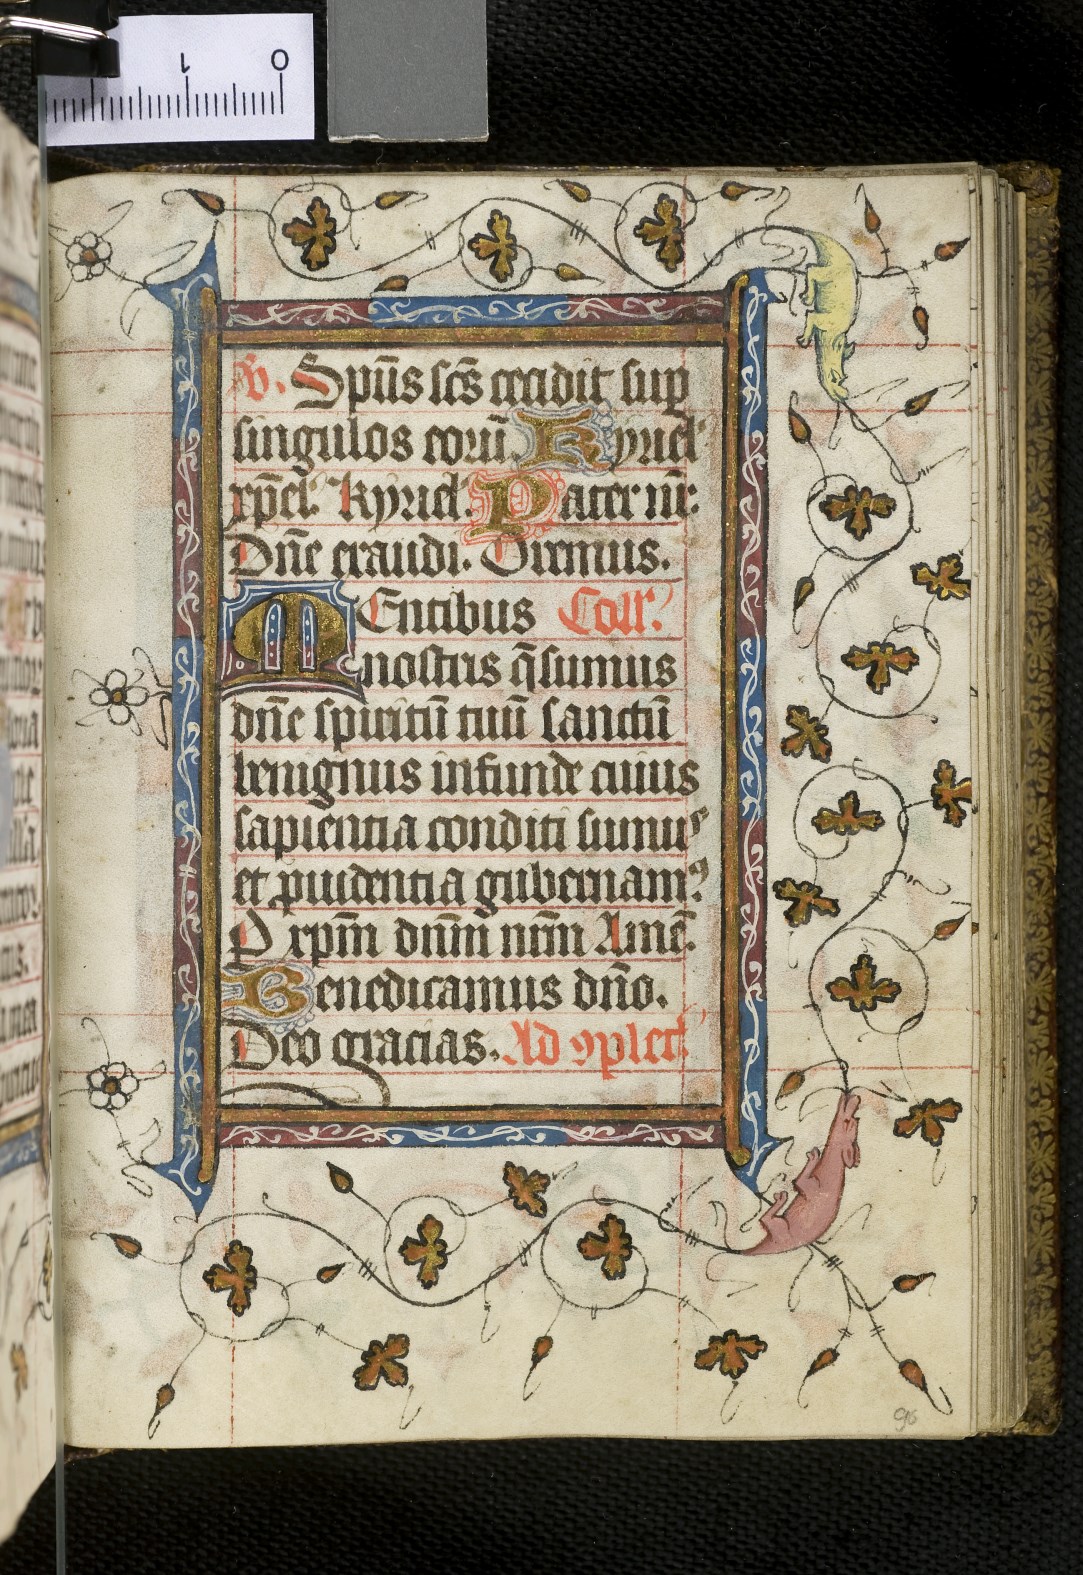 1 0
V. Spūs scs cecidit sup
singulos eorū. Kyriel'
xp̄el' kyriel. Pater nr̄.
Dn̄e exaudi. Oremus.
MEntibus Coll'
nostris q̄sumus
dn̄e spiritū tuū sanctū
benignus infunde cuius
sapientia conditi sumus
et ꝓuidentia gubernamꝰ
P xpm̄ dn̄m nr̄m Amē.
Benedicamus dn̄o.
Deo gracias. Ad ꝯplet'
96